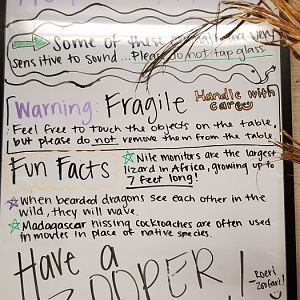 Some of these animals are very
sensitive to sound... Please do not tap glass
Warning: Fragile
Handle with
care
Feel free to touch the objects on the table,
but please do not remove them from the table.
Fun Facts
Nile monitors are the largest
lizard in Africa, growing up to
7 feet long!
When bearded dragons see each other in the
wild, they will wave.
Madagascar hissing cockroaches are often used
in movies in place of native species.
Have a
ZOOPER
!